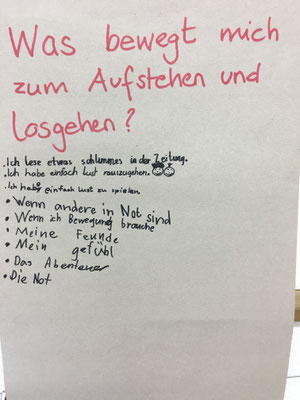 Was bewegt mich
zum Aufstehen und
losgehen?
.Ich lese etwas schlimmes in der Zeitung.
.Ich habe einfach lust rauszugehen.
.Ich habe einfach lust zu spielen
• Wenn andere in Not sind
• Wenn ich Bewegung brauche
• Meine Feunde
• Mein gefühl
• Das Abenteuer
• Die Not